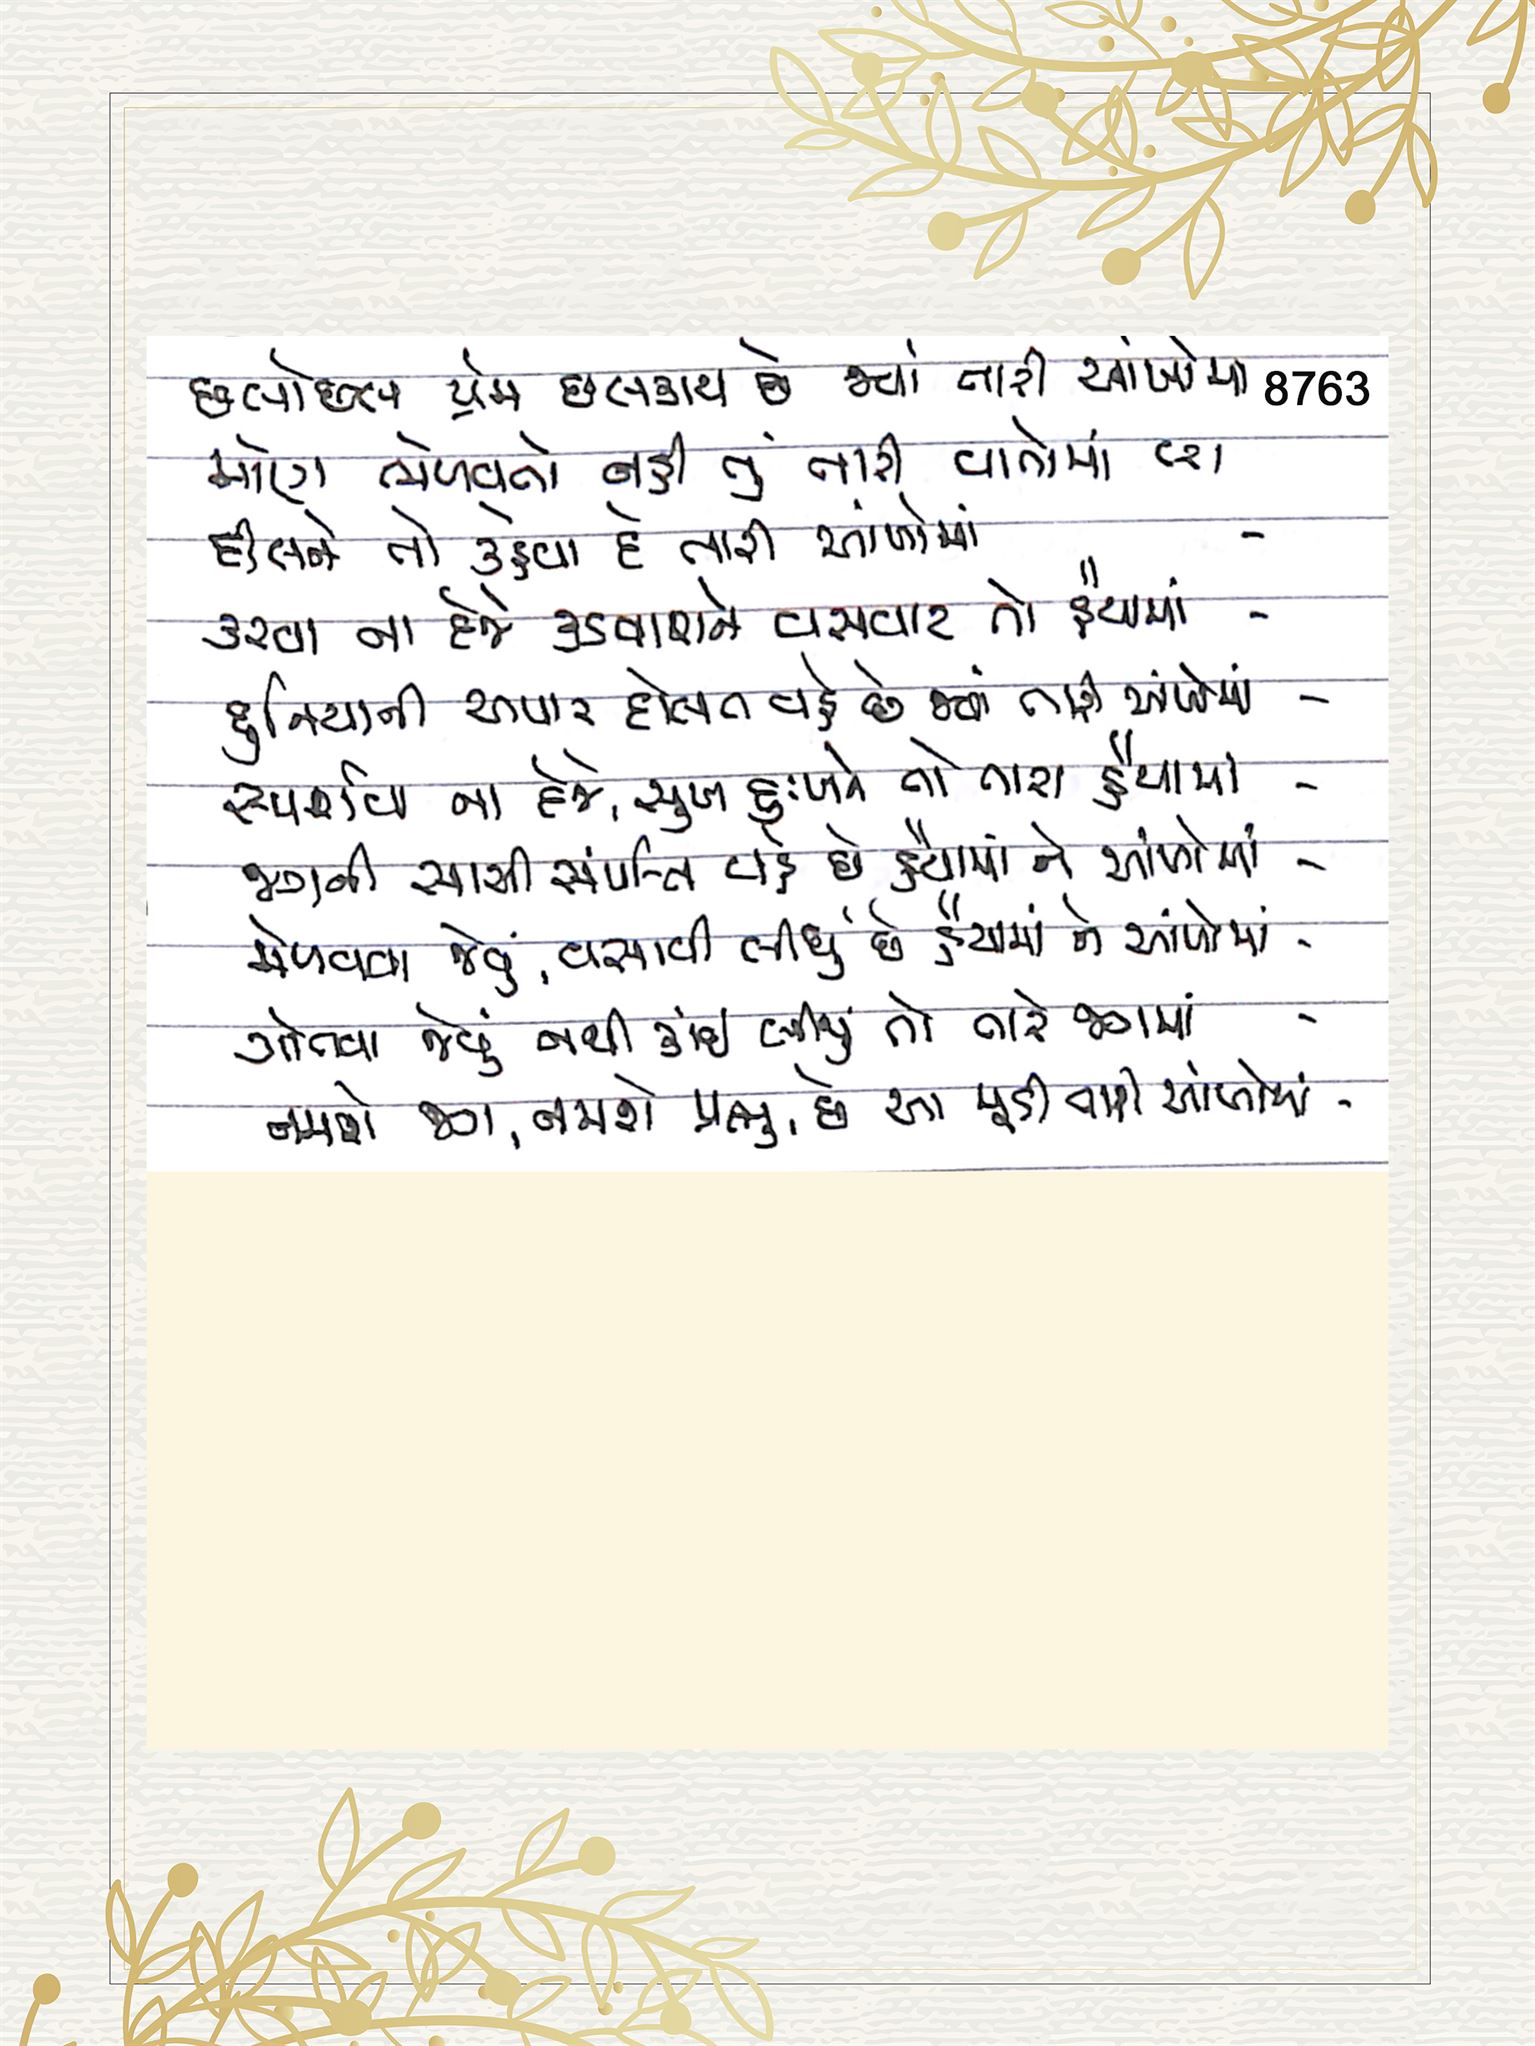 છલોછલ પ્રેમ છલકાય છે જ્યાં તારી આંખોમાં 8763
મોણ ભેળવતો નહીં તું તારી વાતોમાં
દીલને તો કહેવા દે તારી આંખોમાં -
કરવા ના દેજે કડવાશને વસવાટ તો હૈયામાં -
દુનિયાની અપાર દોલત વહે છે જ્યાં તારી આંખોમાં -
સ્પર્શવા ના દેજે, સુખ દુઃખને તો તારા હૈયામાં -
જગની સાચી સંપત્તિ વહે છે હૈયામાં ને આંખોમાં -
મેળવવા જેવું, વસાવી લીધું છે હૈયામાં ને આંખોમાં -
ગોતવા જેવું નથી કાંઈ બીજું તો તારે જગમાં -
નમશે જગ, નમશે પ્રભુ, છે આ મૂડી તારી આંખોમાં -